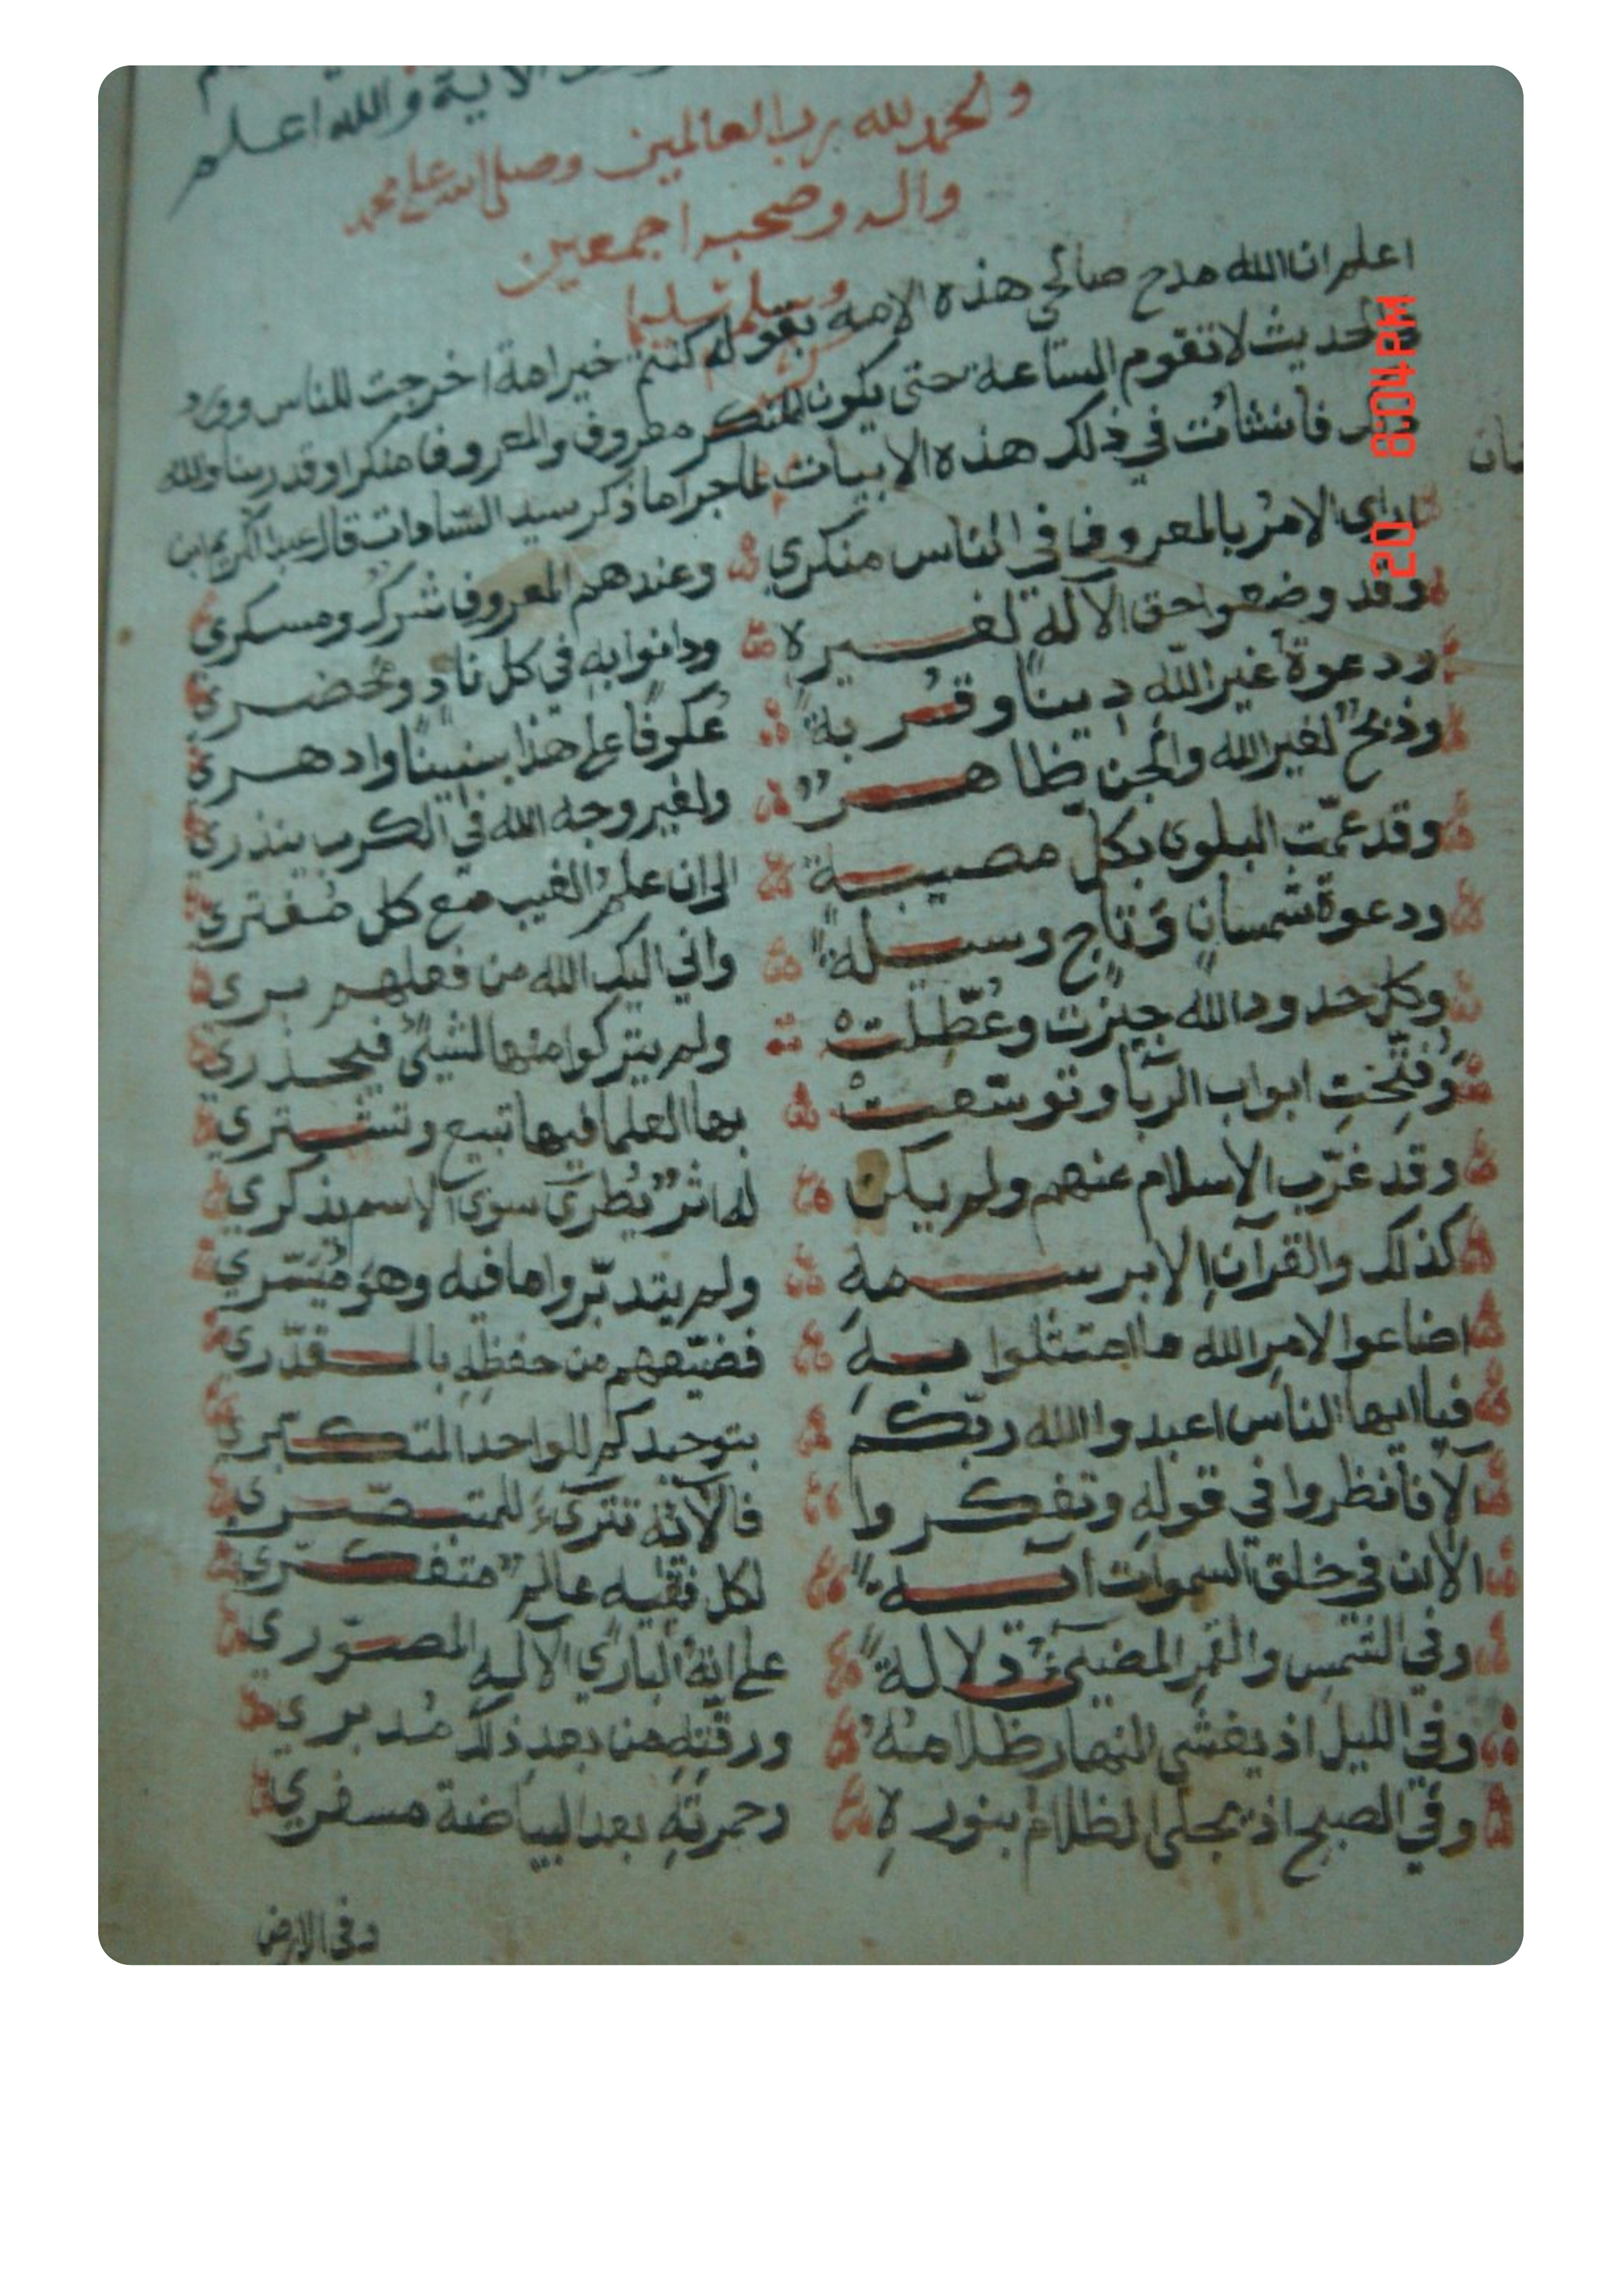 الاية والله اعلم
ولحمد لله رب العالمين وصلى الله على محمد
واله وصحبه اجمعين
وسلم تسليما
اعلم ان الله مدح صالحي هذه الامه بقوله كنتم خير امة اخرجت للناس وورد
الحديث لا تقوم الساعة حتى يكون المنكر معروف والمعروفا منكرا وقد رينا والله
فانشات في ذلك هذه الابيات لما جرا ما ذكر سيد السادات قال عبد الكريم ابن
ارى الامر بالمعروف في الناس منكري وعندهم المعروف شرك ومسكري
وقد وضعوا حق الآله لغيره ودانوا به في كل ناد ومحضري
ودعوة غير الله دينا وقربة عكوفا على هذا سنينا وادهري
وذبح لغير الله والجن ظاهر ولغير وجه الله في الكرب ينذري
وقد عمّت البلوى بكل مصيبة الى ان علم الغيب مع كل مفتري
ودعوة شمسان وتاج وسيلة واني اليك الله من فعلهم بري
وكل حدود الله جيزت وعُطّلت ولم يتركوا منها لشيئ فيحذري
وفتّحت ابواب الربا وتوسّعت بها العلما فيها تبيع وتشتري
وقد غرّب الاسلام عنهم ولم يكن له اثر يُطرى سوى الاسم يذكري
كذلك والقرآن الا برسمه ولم يتدبّروا ما فيه وهو ميسّري
اضاعوا لامر الله ما امتثلوا به فضيّعهم من حفظه بالمقدّري
فيا ايها الناس اعبدوا الله ربّكم بتوحيدكم للواحد المتكبّري
الا فانظروا في قوله وتفكروا فالآته تترىء للمتبصّري
الا ان في خلق السموات آية لكل فقيه عالم متفكّري
وفي الشمس والقمر المضيئ دلالة على انه الباري الآليه المصوّري
وفي الليل اذ يغشى النهار ظلامه ورقته من بعد ذلك مدبري
وفي الصبح اذ يجلى الظلام بنوره وحمرته بعد البياضة مسفري
وفي الارض
20 8:04PM